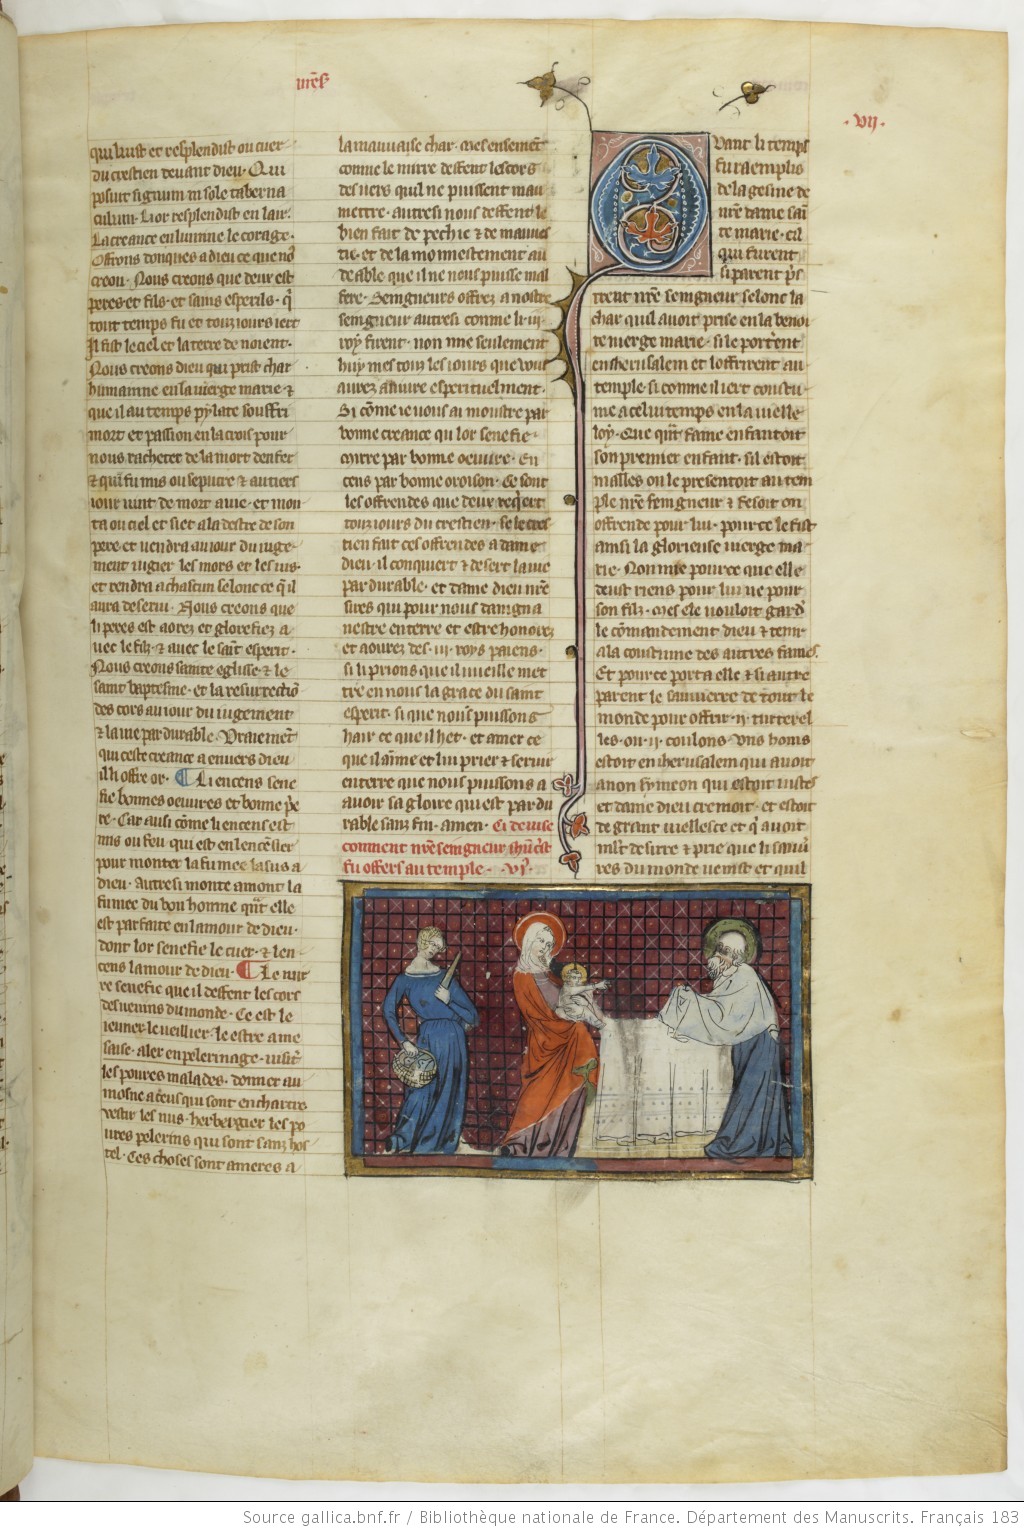 .vij.
qui luist et resplendist ou cuer
du crestien devant dieu. Qui
posuit signum in sole taberna
culum. Li or resplendist en lair.
La creance enlumine le corage.
Offrons donques a dieu ce que no9
creon. Nous creons que deux est
peres et fils et sains esperis. q̃
tout temps fu et touz iours iert
Il fist le ciel et la terre de noient.
Nous creons dieu qui prist char
humainne en la vierge marie. ⁊
que il au temps pylate souffri
mort et passion en la crois pour
nous racheter de la mort denfer
⁊ qui fu mis ou sepucre ⁊ au tiers
iour vint de mort a vie. et mon
ta ou ciel et siet a la destre de son
pere et vendra au iour du iuge
ment iugier les mors et les vis.
et rendra a chascun selonc ce q̃ il
aura deservi. Nous creons que
li peres est aorez et glorefiez a
vec le filz ⁊ avec le saīt esperit.
Nous creons sainte eglise ⁊ le
saint baptesme. et la resurrectiō
des cors au iour du iugement
⁊ la vie pardurable. Vraiemēt
qui ceste creance a envers dieu
il li offre or. Li encens sene
fie bonnes oeuvres et bonne p̄ie
re. Car ausi cōme li encens est
mis ou feu. qui est en lencensier
pour monter la fumee lasus a
dieu. Autresi monte amont la
fumee du bon homme. quāt elle
est parfaite en lamour de dieu.
dont lor senefie le cuer. ⁊ len
cens lamour de dieu. Le mir
re senefie que il deffent les cors
des vermins du monde. Ce est le
ieuner. le veillier. le estre a me
saise. aler en pelerinage. visit̄
les poures malades. donner au
mosne a ceus qui sont en chartre
vestir les nus. herbergier les po
vres pelerins qui sont sanz hos
tel. Ces choses sont ameres a
la mauvaise char. mes ensemēt
comme le mirre deffent les cors
des vers quil ne puissent mau
mettre. autresi nous deffent le
bien fait de pechie ⁊ de mauves
tie. et de la monnestement au
deable que il ne nous puisse mal
fere. Seingneurs offrez a nostre
seingneur autresi comme li .iii.
roy firent. non mie seulement
huy mes touz les iours que vous
aurez a vivre esperituelment.
Si cōme ie vous ai moustre par
bonne creance qui lor senefie.
Mirre par bonne oeuvre. En
cens par bonne oroison. Ce sont
les offrendes que deux req̄iert
touz iours du crestien. se le cres
tien fait ces offrendes a dame
dieu. il conquiert ⁊ desert la vie
pardurable. et dame dieu nr̄e
sires qui pour nous daingna
nestre en terre et estre honorez
et aourez des .iii. roys paiens.
si li prions que il vueille met
tre en nous la grace du saint
esperit. si que nous puissons
hair ce que il het. et amer ce
que il aīme et lui prier ⁊ servir
en terre que nous puissons a
avoir sa gloire qui est pardu
rable sanz fin. amen. Ci devise
comment nr̄e seingneur ihūcrist
fu offers au temple. .vi.
Quant li temps
fu raemplis
de la gesine de
nr̄e dame sai
te marie. cil
qui furent
si parent p̄s
trent nr̄e seingneur selonc la
char quil avoit prise en la benoi
te vierge marie. si le porterent
en iherusalem et loffrirent au
temple. si comme il iert constu
me a celui temps en la vielle
loy. Que quāt fame enfantoit
son premier enfant. sil estoit
malles on le presentoit au tem
ple nr̄e seingneur ⁊ fesoit on
offrende pour lui. pour ce le fist
ainsi la glorieuse vierge ma
rie. Non mie pour ce que elle
deust riens pour lui ne pour
son filz. Mes ele vouloit gard̄
le cōmandement dieu ⁊ tenir
a la coustume des autres fames.
Et pour ce porta elle ⁊ si autre
parent le sauveerre de tout le
monde pour offrir .ii. turterel
les. ou .ii. coulons. Uns homs
estoit en iherusalem qui avoit
a non symeon qui estoit iustes
et dame dieu cremoit. et estoit
de grant viellesce et q̄ avoit
mlt̄ desirre ⁊ prie que li sauue
res du monde venist et quil